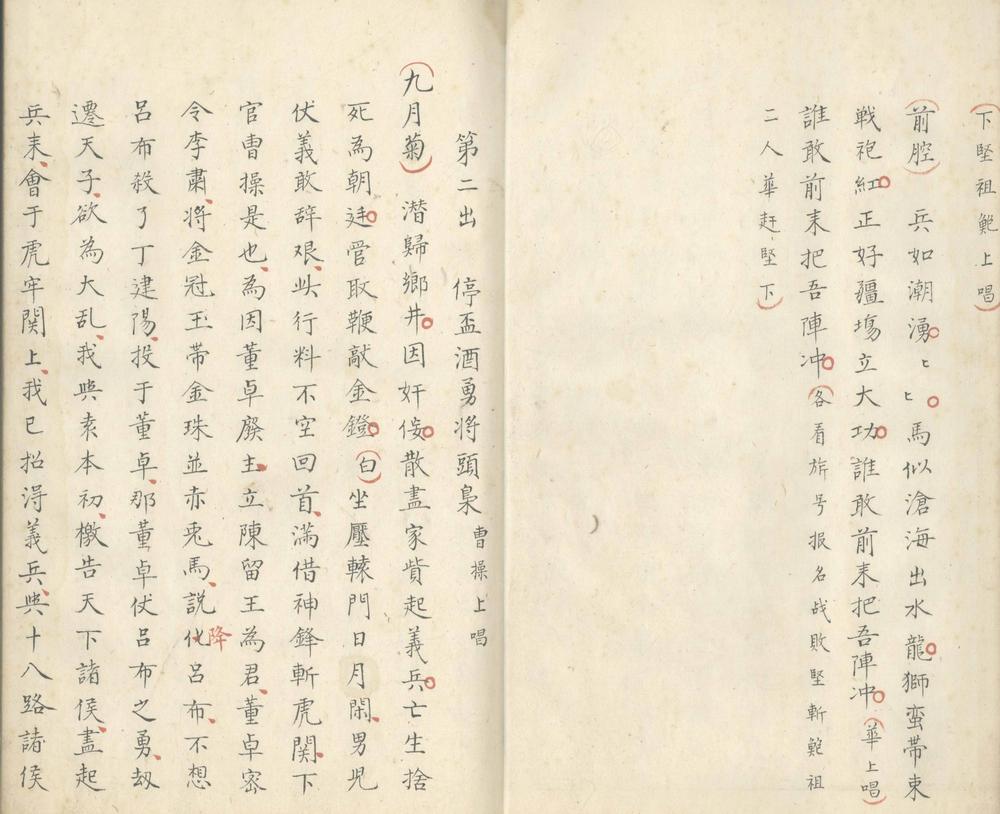 下堅祖鮑上唱）
（前腔）兵如潮湧ヒヒ馬似滄海出水龍獅蛮帶束
戦袍紅正好疆場立大功誰敢前来把吾陣冲（華上唱）
誰敢前来把吾陣冲（各看旂号报名战敗堅斬鮑祖
二人華赶堅下）
第二出　停盃酒勇將頭梟　曹操上唱
（九月菊）潜歸鄉井因奸佞散盡家貲起義兵亡生捨
死為朝廷管取鞭敲金鐙（白）坐壓轅門日月閑男児
伏義敢辞艰此行料不空回首滿借神鋒斬虎関下
官曹操是也為因董卓廢主立陳留王為君董卓密
令李肅將金冠玉帶金珠並赤兎馬説化降呂布不想
呂布殺了丁建陽投于董卓那董卓仗呂布之勇劫
遷天子欲為大乱我與袁本初檄告天下諸侯盡起
兵来會于虎牢関上我已招淂義兵與十八路諸侯